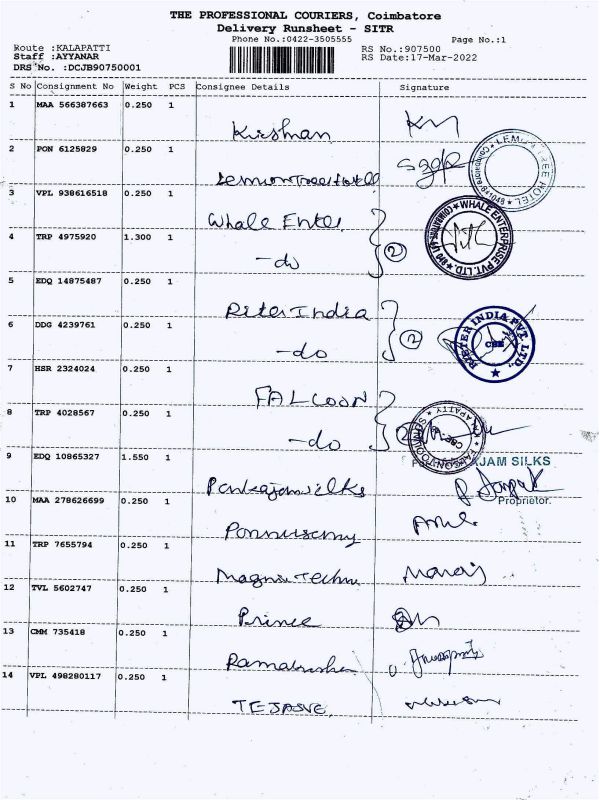 THE PROFESSIONAL COURIERS, Coimbatore
Delivery Runsheet - SITR
Phone No.:0422-3505555
Page No.:1
Route :KALAPATTI
RS No.:907500
Staff :AYYANAR
RS Date:17-Mar-2022
DRS No. :DCJB90750001
S No Consignment No Weight PCS Consignee Details Signature
1 MAA 566387663 0.250 1
Krishnan
2 PON 6125829 0.250 1
LEMON TREE HOTEL
Lemontree Hotel
3 VPL 938616518 0.250 1
Whale Enter
WHALE ENTERPRISE PVT. LTD.
4 TRP 4975920 1.300 1
-do
2
5 EDQ 14875487 0.250 1
Rieter India
RIETER INDIA PVT. LTD.,
6 DDG 4239761 0.250 1
-do
2
7 HSR 2324024 0.250 1
FALCOON
8 TRP 4028567 0.250 1
-do
2
9 EDQ 10865327 1.550 1
AJAM SILKS
Pankajam silks
Proprietor.
10 MAA 278626699 0.250 1
Ponnusamy
11 TRP 7655794 0.250 1
Magna Techn
12 TVL 5602747 0.250 1
Prince
13 CMM 735418 0.250 1
14 VPL 498280117 0.250 1